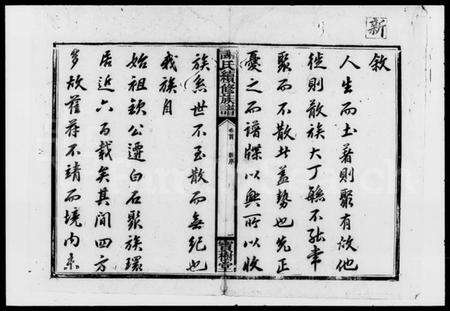 新
敘
人生而土著則聚有故他
徙則散族大丁繇不能常
聚而不散此羞勢也先正
憂之而譜牒以興所以收
氏續修族譜
卷首
族
世不至散而無紀也
我族自
始祖欽公遷白石聚族環
居近六百載矣其間四方
多故
不靖而境內